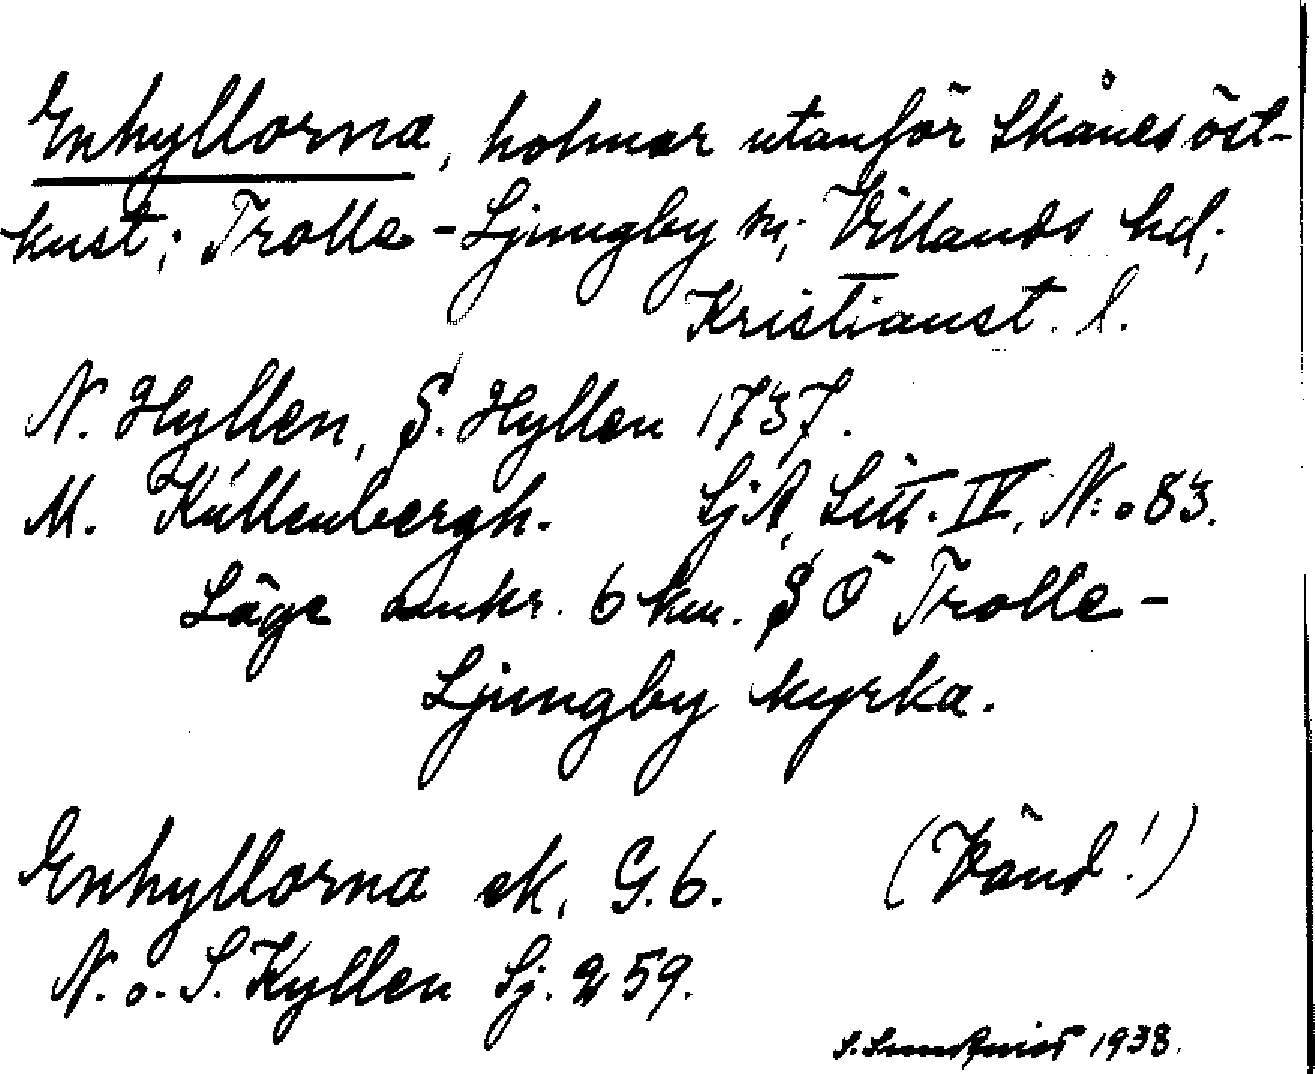 Enhyllorna, holmar utanför Skånes öst-
kust; Trolle-Ljungby sn; Villands hd;
Kristianst. l.
N. Hyllen, S. Hyllen 1737.
M. Kullenbergh. SjA, Litt. IV, N:o 83.
Läge omkr. 6 km. S Ö Trolle-
Ljungby kyrka.
Enhyllorna ek, G.6. (Vänd!)
N. o. S. Kyllen Sj. 259.
S. Lundqvist 1938.